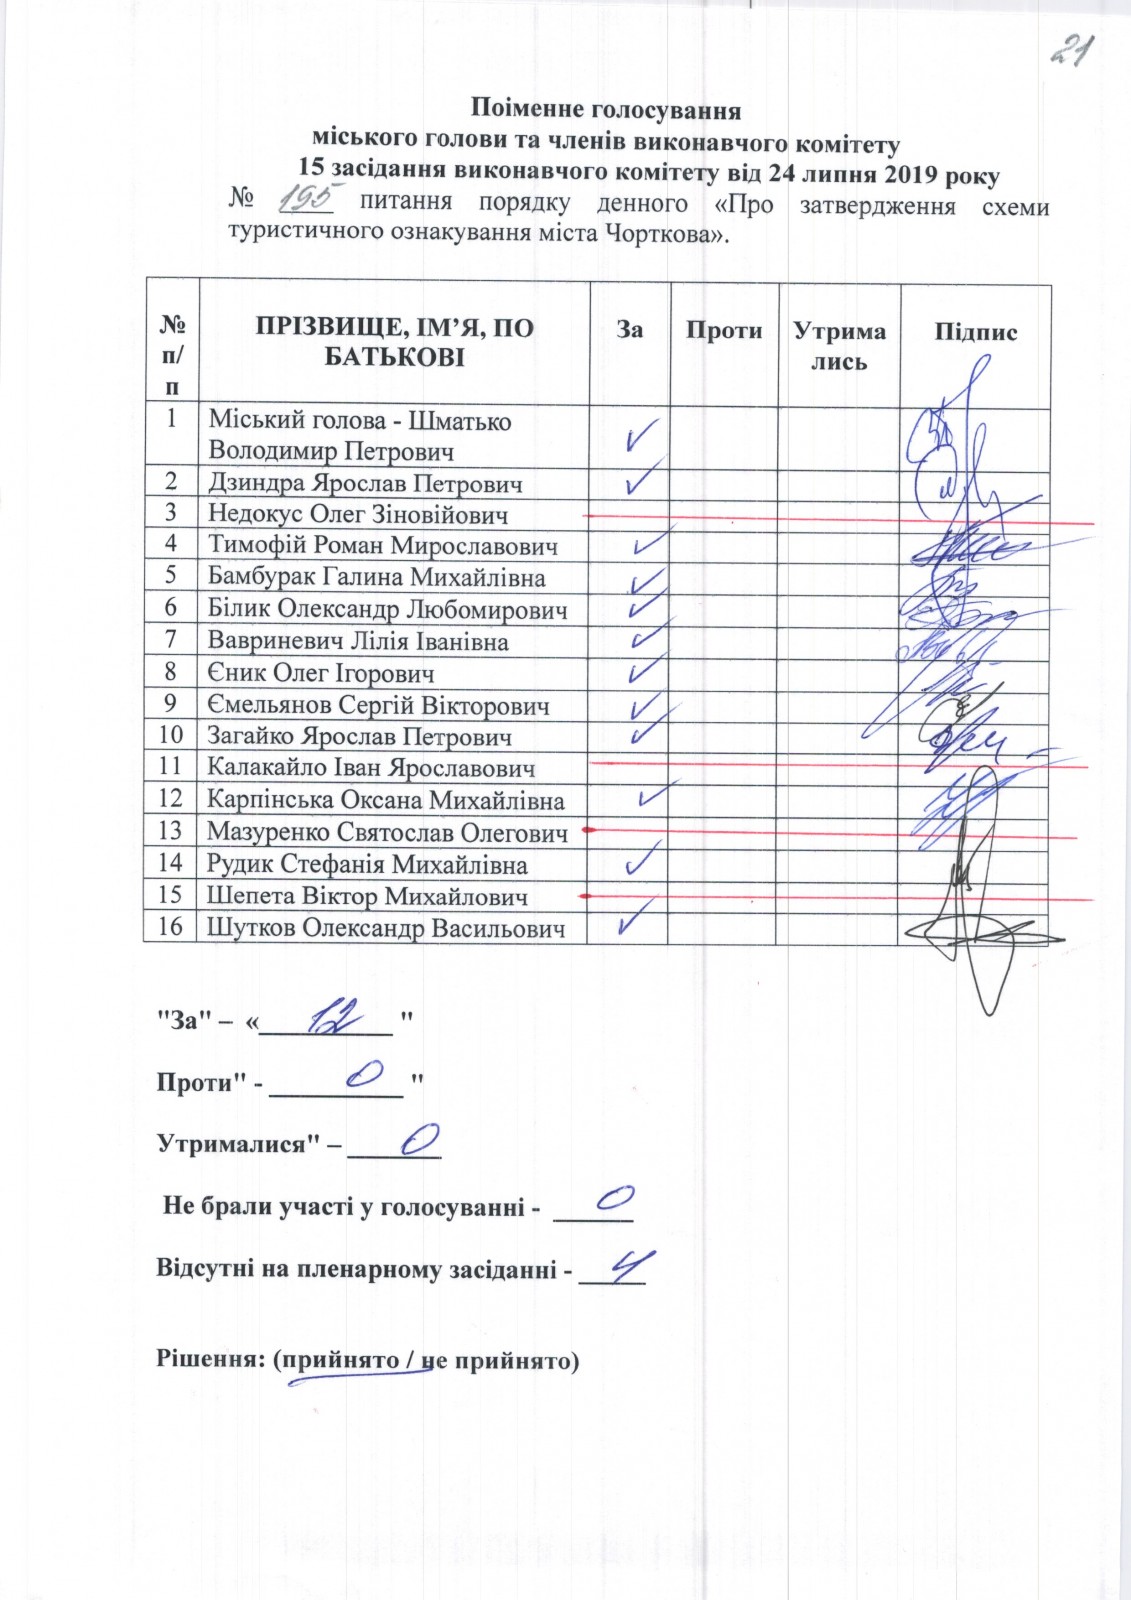 21
Поіменне голосування
міського голови та членів виконавчого комітету
15 засідання виконавчого комітету від 24 липня 2019 року
№ 195 питання порядку денного «Про затвердження схеми
туристичного ознакування міста Чорткова».
№ п/п ПРІЗВИЩЕ, ІМ’Я, ПО БАТЬКОВІ За Проти Утрима лись Підпис
1 Міський голова - Шматько
Володимир Петрович
2 Дзиндра Ярослав Петрович
3 Недокус Олег Зіновійович
4 Тимофій Роман Мирославович
5 Бамбурак Галина Михайлівна
6 Білик Олександр Любомирович
7 Вавриневич Лілія Іванівна
8 Єник Олег Ігорович
9 Ємельянов Сергій Вікторович
10 Загайко Ярослав Петрович
11 Калакайло Іван Ярославович
12 Карпінська Оксана Михайлівна
13 Мазуренко Святослав Олегович
14 Рудик Стефанія Михайлівна
15 Шепета Віктор Михайлович
16 Шутков Олександр Васильович
"За" – « 12 "
Проти" - 0 "
Утрималися" – 0
Не брали участі у голосуванні - 0
Відсутні на пленарному засіданні - 4
Рішення: (прийнято / не прийнято)